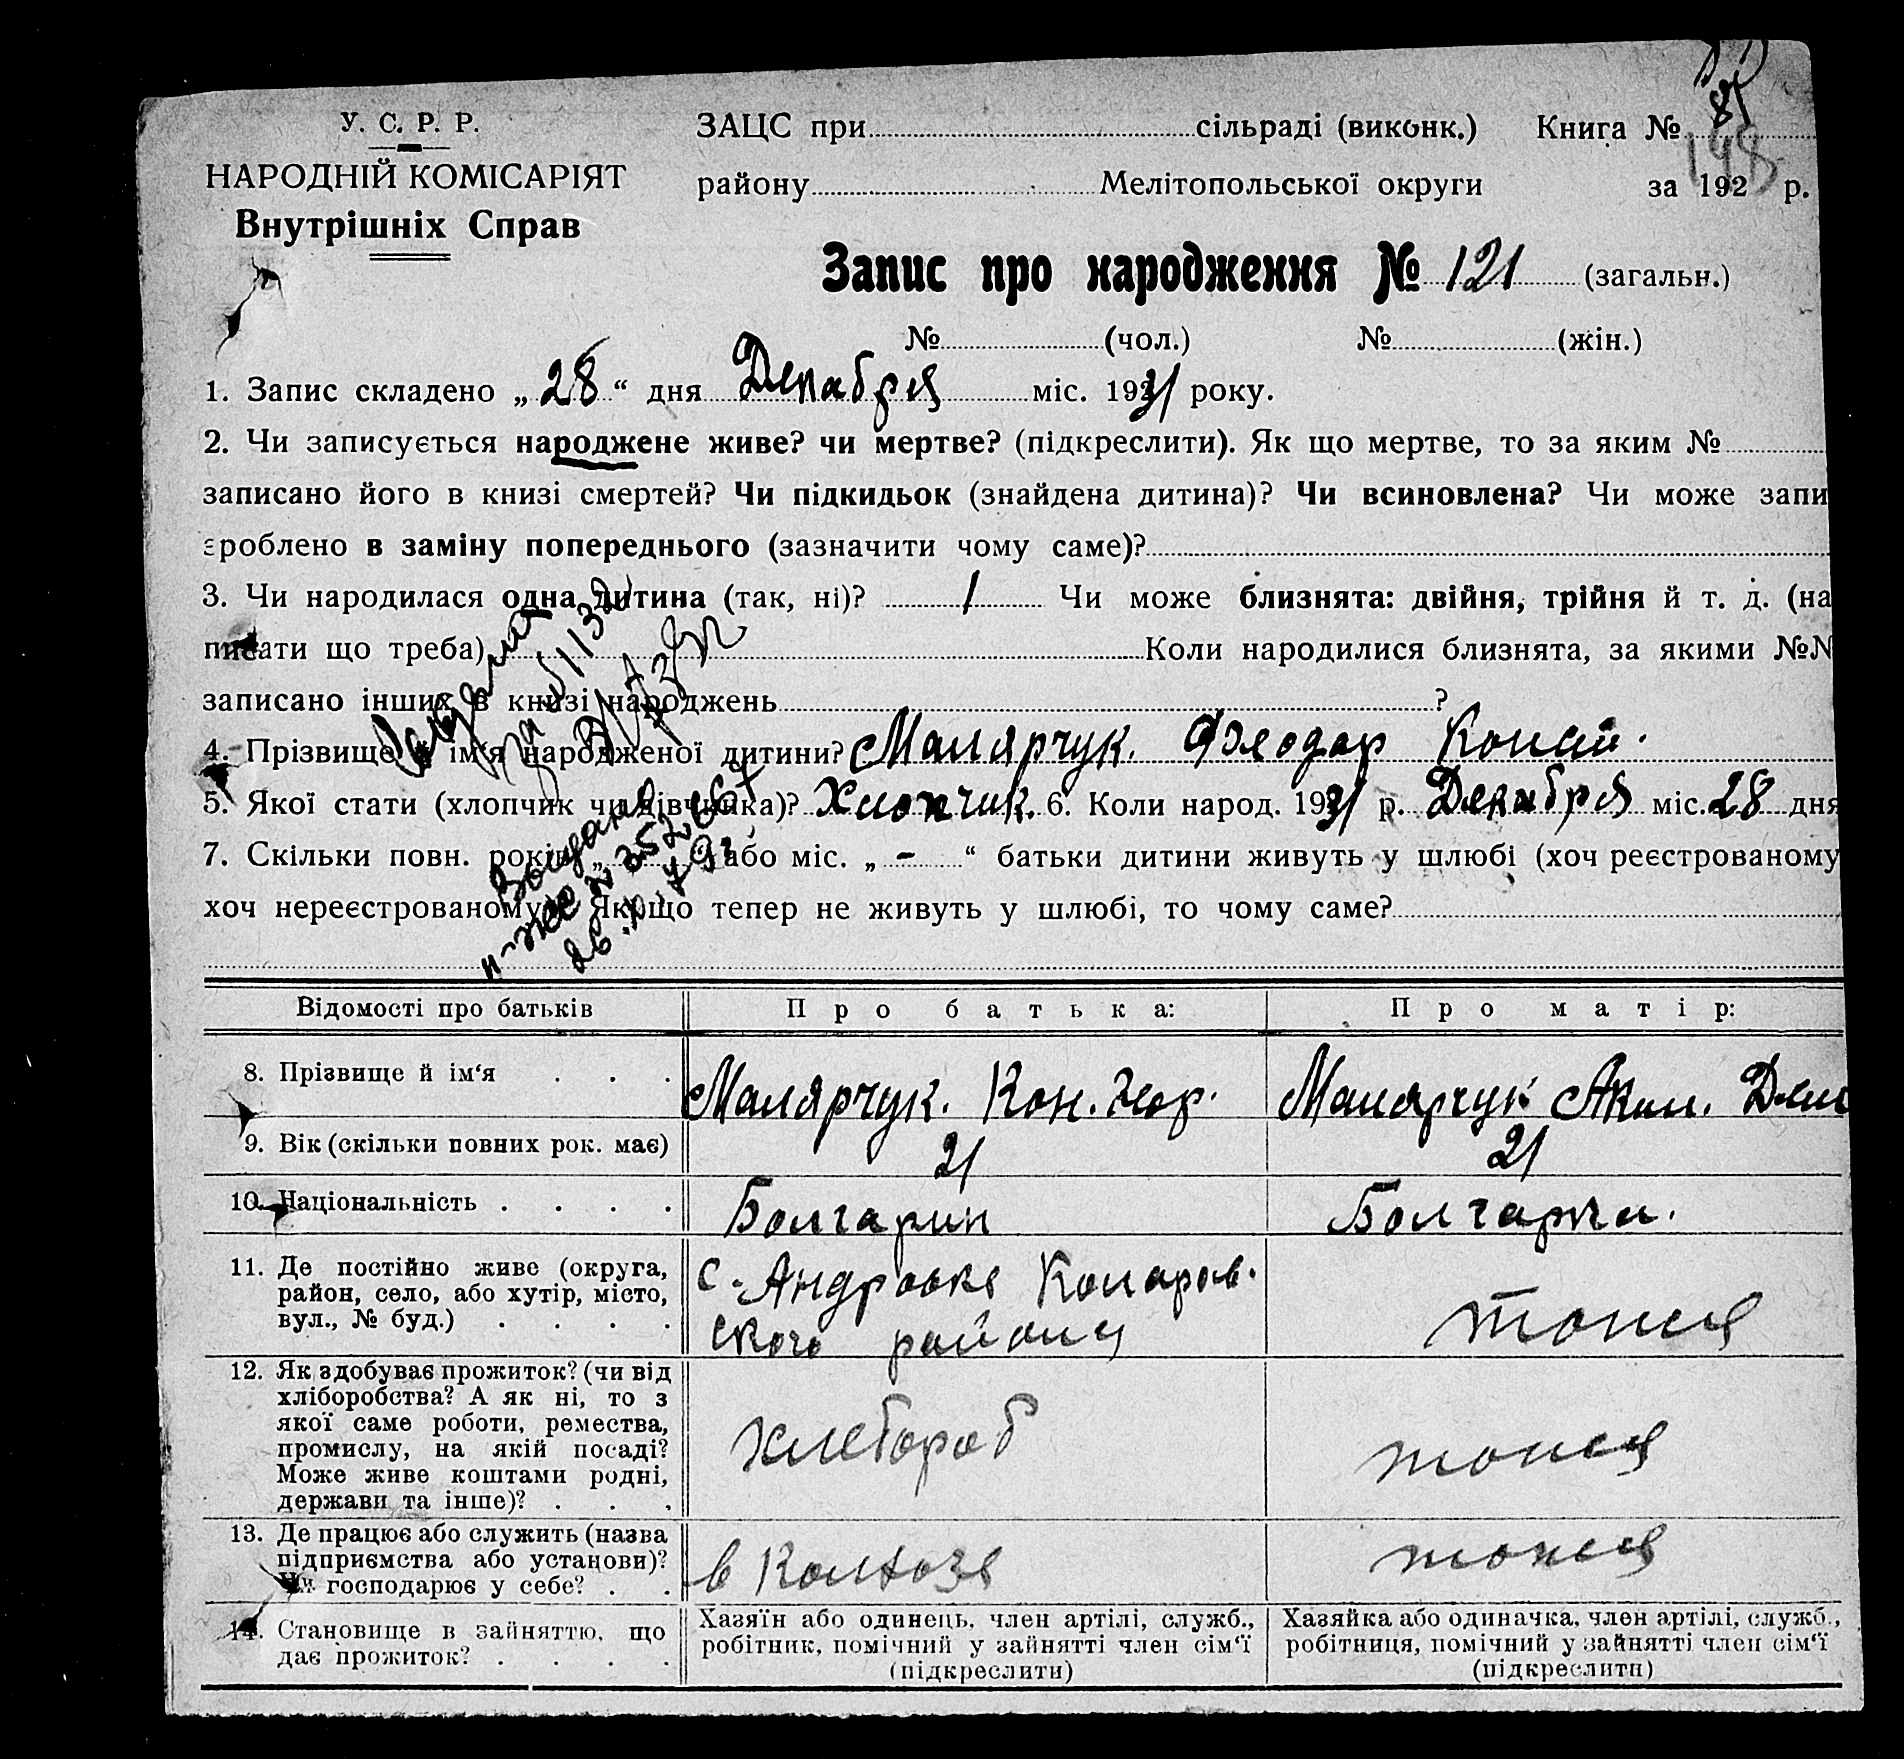 У. С. Р. Р.
НАРОДНІЙ КОМІСАРІЯТ
Внутрішніх Справ
ЗАЦС при сільраді (виконк.) Книга №
198
району Мелітопольської округи за 192 р.
Запис про народження № 121 (загальн.)
№ (чол.) № (жін.)
1. Запис складено „ 28 “ дня Декабря міс. 1931 року.
2. Чи записується народжене живе? чи мертве? (підкреслити). Як що мертве, то за яким №
записано його в книзі смертей? Чи підкидьок (знайдена дитина)? Чи всиновлена? Чи може запи
зроблено в заміну попереднього (зазначити чому саме)?
3. Чи народилася одна дитина (так, ні)? 1 Чи може близнята: двійня, трійня й т. д. (на
писати що треба) Коли народилися близнята, за якими №№
записано інших в книзі народжень ?
4. Прізвище й ім‘я народженої дитини? Малярчук. Феодор Конст.
5. Якої стати (хлопчик чи дівчинка)? Хлопчик. 6. Коли народ. 1931 р. Декабря міс. 28 дня
7. Скільки повн. років „ або міс. „ - “ батьки дитини живуть у шлюбі (хоч реєстрованому
хоч нереєстрованому)? Якщо тепер не живуть у шлюбі, то чому саме?
Видано
Відомості про батьків Про батька: Про матір:
8. Прізвище й ім‘я . . . Малярчук. Кон. Геор. Малярчук Аким. Дем
9. Вік (скільки повних рок. має) 21 21
10. Національність . . . . Болгарин Болгарка.
11. Де постійно живе (округа,
район, село, або хутір, місто,
вул., № буд.) . . . .
с. Андровке Коларов.
ского району
тоже
12. Як здобуває прожиток? (чи від
хліборобства? А як ні, то з
якої саме роботи, ремества,
промислу, на якій посаді?
Може живе коштами родні,
держави та інше)? . . .
хлебороб
13. Де працює або служить (назва
підприємства або установи)?
Чи господарює у себе? . .
в Колхозе
14. Становище в зайняттю, що
дає прожиток? . . . .
Хазяїн або одинець, член артілі, служб.,
робітник, помічний у зайнятті член сім‘ї
(підкреслити)
Хазяйка або одиначка, член артілі, служб.,
робітниця, помічний у зайнятті член сім‘ї
(підкреслити)